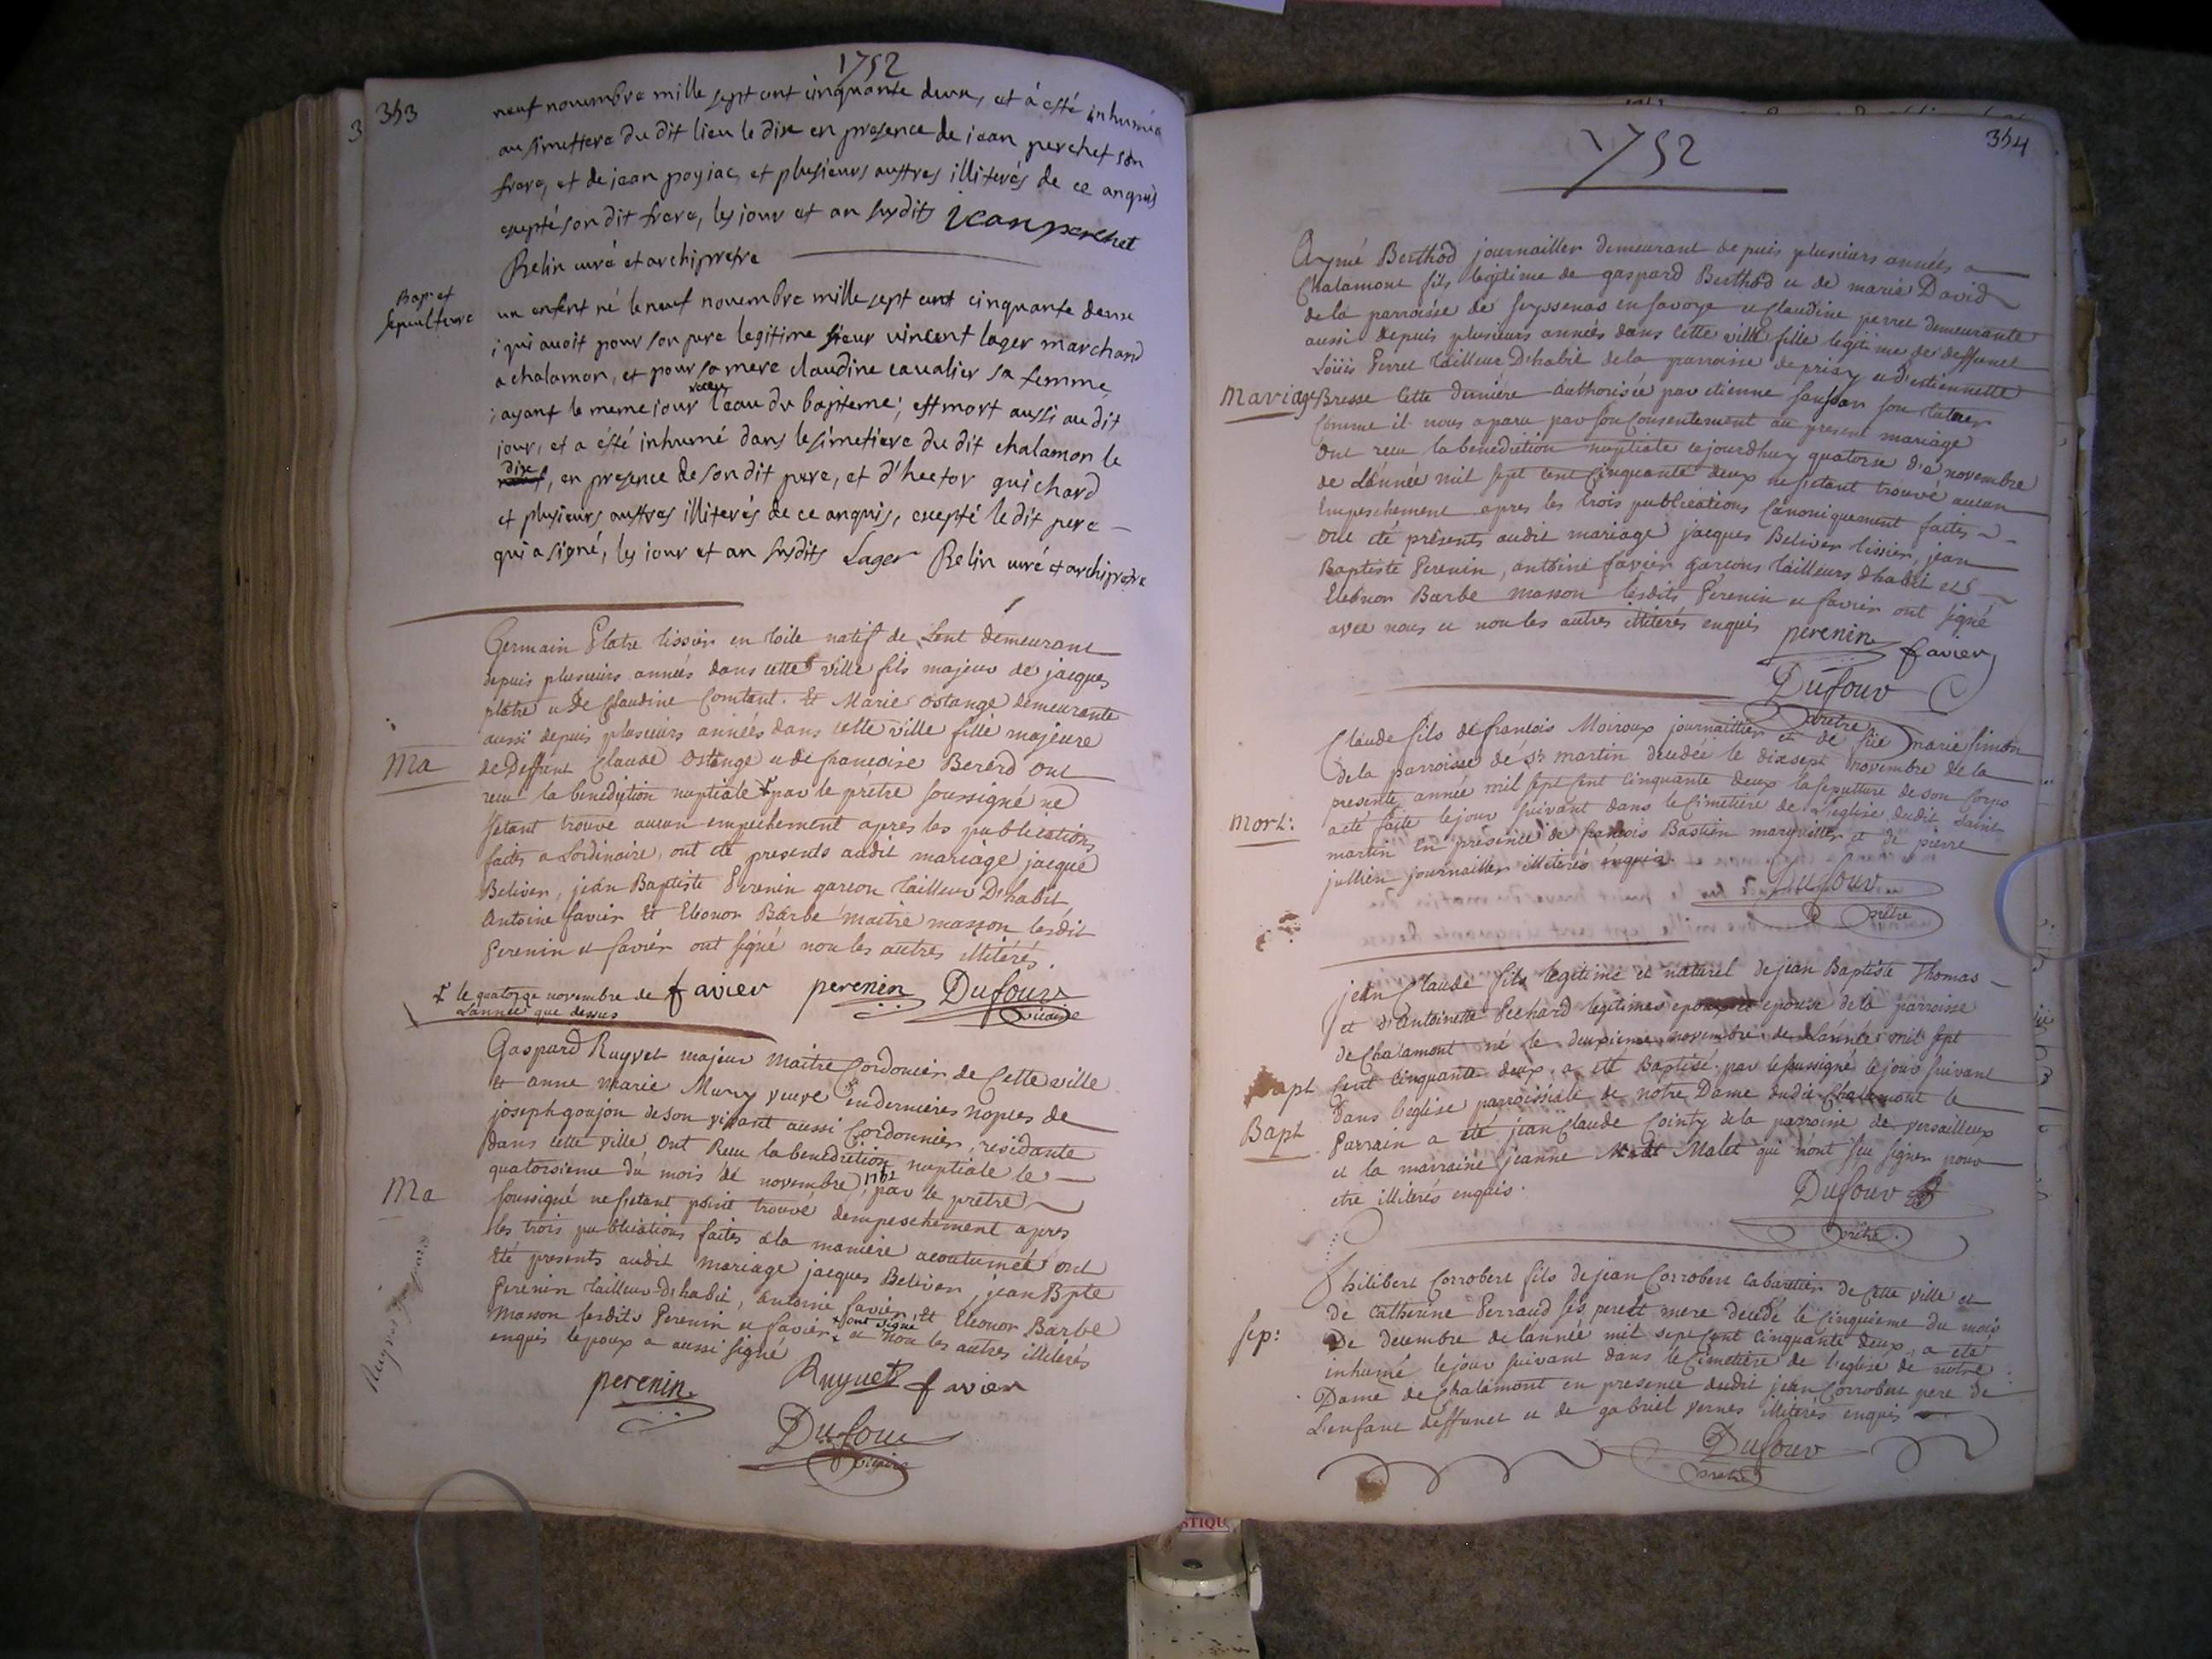 1752
353
neuf novembre mille sept cent cinquante deux, et à esté inhumée
au simettere du dit lieu le dix en presence de jean perchet son
frere, et de jean poyiac, et plusieurs austres illiterés de ce anquis
exepté son dit frere, les jour et an susdits jean perchet
Relin curé et archipretre
Bap: et
sepulteure
un enfent né le neuf novembre mille sept cent cinquante deux
; qui avoit pour son pere legitime sieur vincent lager marchand
a chalamon, et pour sa mere claudine cavalier sa femme
; ayant le meme jour receu l'eau du bapteme; est mort aussi au dit
jour, et a ésté inhumé dans le simetiere du dit chalamon le
dix, en presence de son dit pere, et d'hector guichard
et plusieurs austres illiterés de ce anquis, exepté le dit pere
qui a signé, les jour et an susdits Lager Relin curé et archipretre
Germain Platre tissier en toile natif de Lent demeurant
depuis plusieurs années dans cette ville fils majeur de jacques
platre et de Claudine Comtant. Et Marie Ostange demeurante
aussi depuis plusieurs années dans cette ville fille majeure
Ma
de Deffunt Claude Ostange et de francoise Bererd ont
recu la benediction nuptiale ‡ par le prétre soussigné ne
s'etant trouvé aucun empechement apres les publications
faites a Lordinaire, ont été presents audit mariage jacque
Beliver, jean Baptiste Perenin garcon tailleur D'habit,
Antoine favier Et Eleonor Barbe maitre masson lesdit
Perenin et favier ont signé non les autres illitérés.
‡ le quatorze novembre de
Lannée que dessus
favier perenin Dufour
vicaire
Gaspard Ruyvet majeur maitre Cordonier de Cette ville
et anne marie Mury veuve en dernieres nopces de
joseph goujon de son vivant aussi Cordonnier, residante
dans cette ville ont Recu la benediction nuptiale le
quatorsieme du mois de novembre 1752, par le prétre
Ma
soussigné ne s'etant point trouvé dempeschement apres
les trois publications faites a la maniere acoutumée ont
été presents audit mariage jacques Beliver, jean Bpte
Perenin tailleur D'habit, antoine favier, et Eleonor Barbe
Masson lesdits Perenin et favier + ont signé + et non les autres illiterés
enquis lepoux a aussi signé
perenin Ruyuet favier
Dufour
vicaire
354
1752
Aymé Berthod journaillier demeurant depuis plusieurs années a
Chalamont fils legitime de gaspard Berthod et de marie David
de la parroisse de seyssenas en savoye et Claudine perret demeurante
aussi depuis plusieurs années dans cette ville fille legitime de deffunct
Loüis Perret tailleur D'habit de la parroisse de priay et d'estiennette
Mariage
Bresse cette derniere Authorisée par etienne son tuteur
Comme il nous aparu par son Consentement au present mariage
ont recu la benediction nuptiale cejourdhuy quatorse de novembre
de L'année mil sept cent Cinquante deux ne s'etant trouvé aucun
Empeschement apres les trois publications Canoniquement faites
ont été présents audit mariage jacques Beliver tissier, jean
Baptiste Perenin, antoine favier garcons tailleurs dhabit et
Eleonor Barbe masson lesdits Perenin et favier ont signé
avec nous et non les autres illitérés enquis perenin
favier
Dufour
pretre
Claude fils de francois Moiroux journaillier et de feüe marie simon
de la parroisse de st martin decedée le dixsept novembre de la
presente année mil sept cent cinquante deux la sepulture de son Corps
mort:
a eté faite le jour suivant dans le Cimetiere de L'eglise dudit saint
martin En présence de francois Bastien marguillier et de pierre
jullien journaillier illiterés enquis.
Dufour
prétre
jean Claude fils legitime et naturel de jean Baptiste Thomas
et d'Antoinette Pechard legitimes epouse de la parroisse
de Chalamont né le deuxieme novembre de L'année mil sept
Bapt
Cent Cinquante deux, a eté Baptisé par le soussigné le jour suivant
dans l'eglise parroissiale de notre Dame dudit Chalamont le
Bapt
Parrain a eté jean Claude Cointy de la parroisse de versailleux
et la marraine jeanne Malet qui n'ont seu signer pour
etre illiterés enquis.
Dufour
prétre
Philibert Corrobert fils de jean Corrobert Cabaretier de Cette ville et
de Catherine Perraud ses pere et mere decedé le Cinquieme du mois
sep:
De decembre de l'année mil sept Cent Cinquante deux, a eté
inhumé le jour suivant dans le Cimetiere de l'eglise de notre
Dame de Chalamont en presence dudit jean Corrobert pere de
L'enfant deffunct et de gabriel vernes illiterés enquis
Dufour
pretre